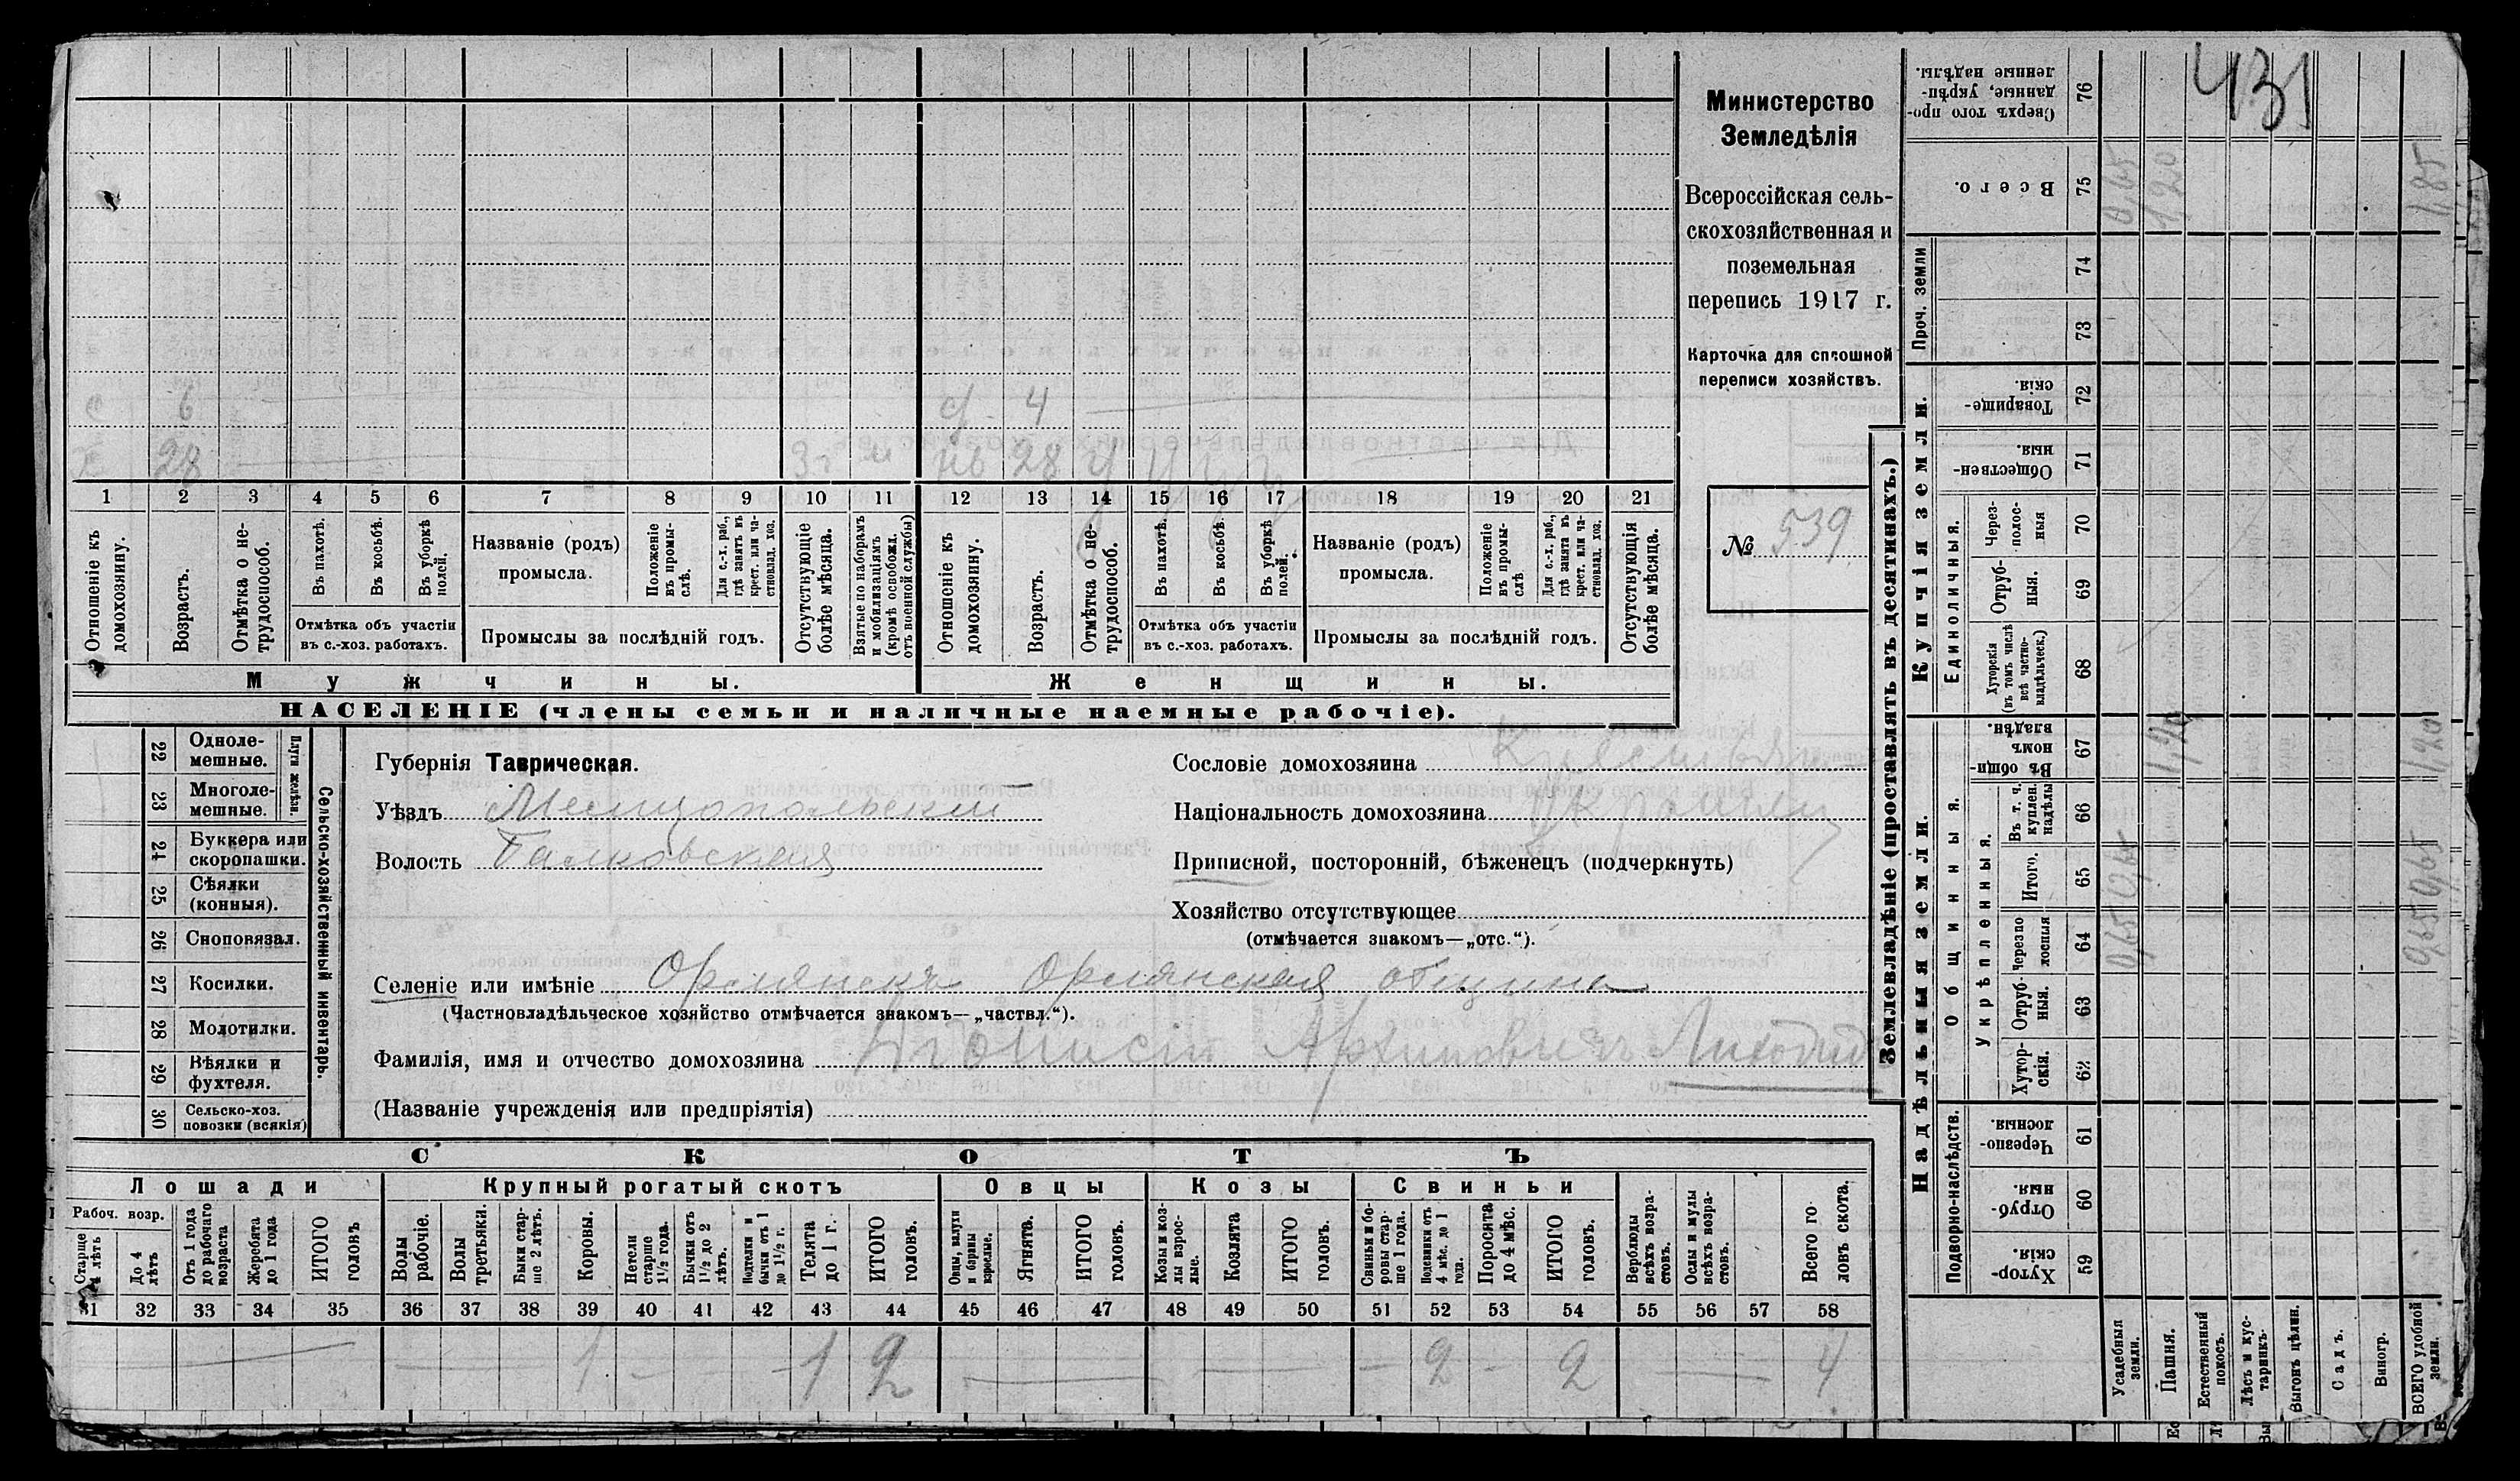 431
Министерство
Земледѣлія
Всероссійская сель-
скохозяйственная и
поземельная
перепись 1917 г.
Карточка для сплошной
переписи хозяйствъ.
№ 539
с 6 ж 4
Х 28 28
1 2 3 4 5 6 7 8 9 10 11 12 13 14 15 16 17 18 19 20 21
Отношеніе къ домохозяину.
Возрастъ.
Отмѣтка о не-
трудоспособ.
Въ пахотѣ.
Въ косьбѣ.
Въ уборкѣ полей.
Отмѣтка объ участіи
въ с.-хоз. работахъ.
Названіе (родъ)
промысла.
Положеніе въ промы-
слѣ.
Для с.-х. раб., гдѣ занятъ въ крест. или ча-
стновлад. хоз.
Промыслы за послѣдній годъ.
Отсутствующіе болѣе мѣсяца.
Взятые по наборамъ и мобилизаціямъ (кромѣ освобожд. отъ военной службы)
Отношеніе къ домохозяину.
Возрастъ.
Отмѣтка о не-
трудоспособ.
Въ пахотѣ.
Въ косьбѣ.
Въ уборкѣ полей.
Отмѣтка объ участіи
въ с.-хоз. работахъ.
Названіе (родъ)
промысла.
Положеніе въ промы-
слѣ
Для с.-х. раб., гдѣ занята въ крест. или ча-
стновлад. хоз.
Промыслы за послѣдній годъ.
Отсутствующія болѣе мѣсяца.
Мужчины.
Женщины.
НАСЕЛЕНІЕ (члены семьи и наличные наемные рабочіе).
Сельско-хозяйственный инвентарь.
Плуги желѣзн.
22 Одноле-
мешные.
23 Многоле-
мешные.
24 Буккера или
скоропашки.
25 Сѣялки
(конныя).
26 Сноповязал.
27 Косилки.
28 Молотилки.
29 Вѣялки и
фухтеля.
30 Сельско-хоз.
повозки (всякія)
Губернія Таврическая.
Уѣздъ Мелитопольскій
Волость Балковская
Сословіе домохозяина
Національность домохозяина
Приписной, посторонній, бѣженецъ (подчеркнуть)
Хозяйство отсутствующее
(отмѣчается знакомъ—„отс.“).
Селеніе или имѣніе Орлянскъ Орлянская община
(Частновладѣльческое хозяйство отмѣчается знакомъ—„частвл.“).
Фамилія, имя и отчество домохозяина Діонисій Архиповичъ
(Названіе учрежденія или предпріятія)
СКОТЪ
Лошади
Крупный рогатый скотъ
Овцы
Козы
Свиньи
Рабоч. возр.
Старше 4 лѣтъ
До 4 лѣтъ
Отъ 1 года до рабочаго возраста
Жеребята до 1 года
ИТОГО головъ
Волы рабочіе.
Волы третьяки.
Быки стар-
ше 2 лѣтъ.
Коровы.
Нетели старше 1½ года.
Бычки отъ 1½ до 2 лѣтъ.
Подтелки и бычки отъ 1 до 1½ г.
Телята до 1 г.
ИТОГО головъ.
Овцы, валухи и бараны взрослые.
Ягнята.
ИТОГО головъ.
Козы и коз-
лы взрос-
лые.
Козлята
ИТОГО головъ.
Свиньи и бо-
ровы стар-
ше 1 года.
Подсвинки отъ 4 мѣс. до 1 года.
Поросята до 4 мѣс.
ИТОГО головъ.
Верблюды всѣхъ возра-
стовъ.
Ослы и мулы всѣхъ возра-
стовъ.
Всего го-
ловъ скота.
31 32 33 34 35 36 37 38 39 40 41 42 43 44 45 46 47 48 49 50 51 52 53 54 55 56 57 58
1 1 2 2 2 4
Землевладѣніе (проставлять въ десятинахъ.)
Купчія земли.
Надѣльныя земли.
Проч. земли
Единоличныя.
Общинныя.
Укрѣпленныя.
Подворно-наслѣдств.
76 Сверхъ того про-
данные, укрѣп-
ленные надѣлы.
75 Всего. 0,65 1,20 1,85
74
73
72 Товарище-
скія.
71 Обществен-
ныя.
70 Через-
полос-
ныя
69 Отруб-
ныя.
68 Хуторскія (въ томъ числѣ всѣ частно-
владѣльческ.)
67 Въ общин-
номъ владѣн. 1,20 1,20
66 Въ т. ч. куплен. надѣлы
65 Итого. 0,65 0,65
64 Черезпо-
лосныя 0,65 0,65
63 Отруб-
ныя.
62 Хутор-
скія.
61 Черезпо-
лосныя.
60 Отруб-
ныя.
59 Хутор-
скія.
Усадебныя земли.
Пашня.
Естественный покосъ.
Лѣсъ и кус-
тарникъ.
Выгонъ цѣлин.
Садъ.
Виногр.
ВСЕГО удобной земли.